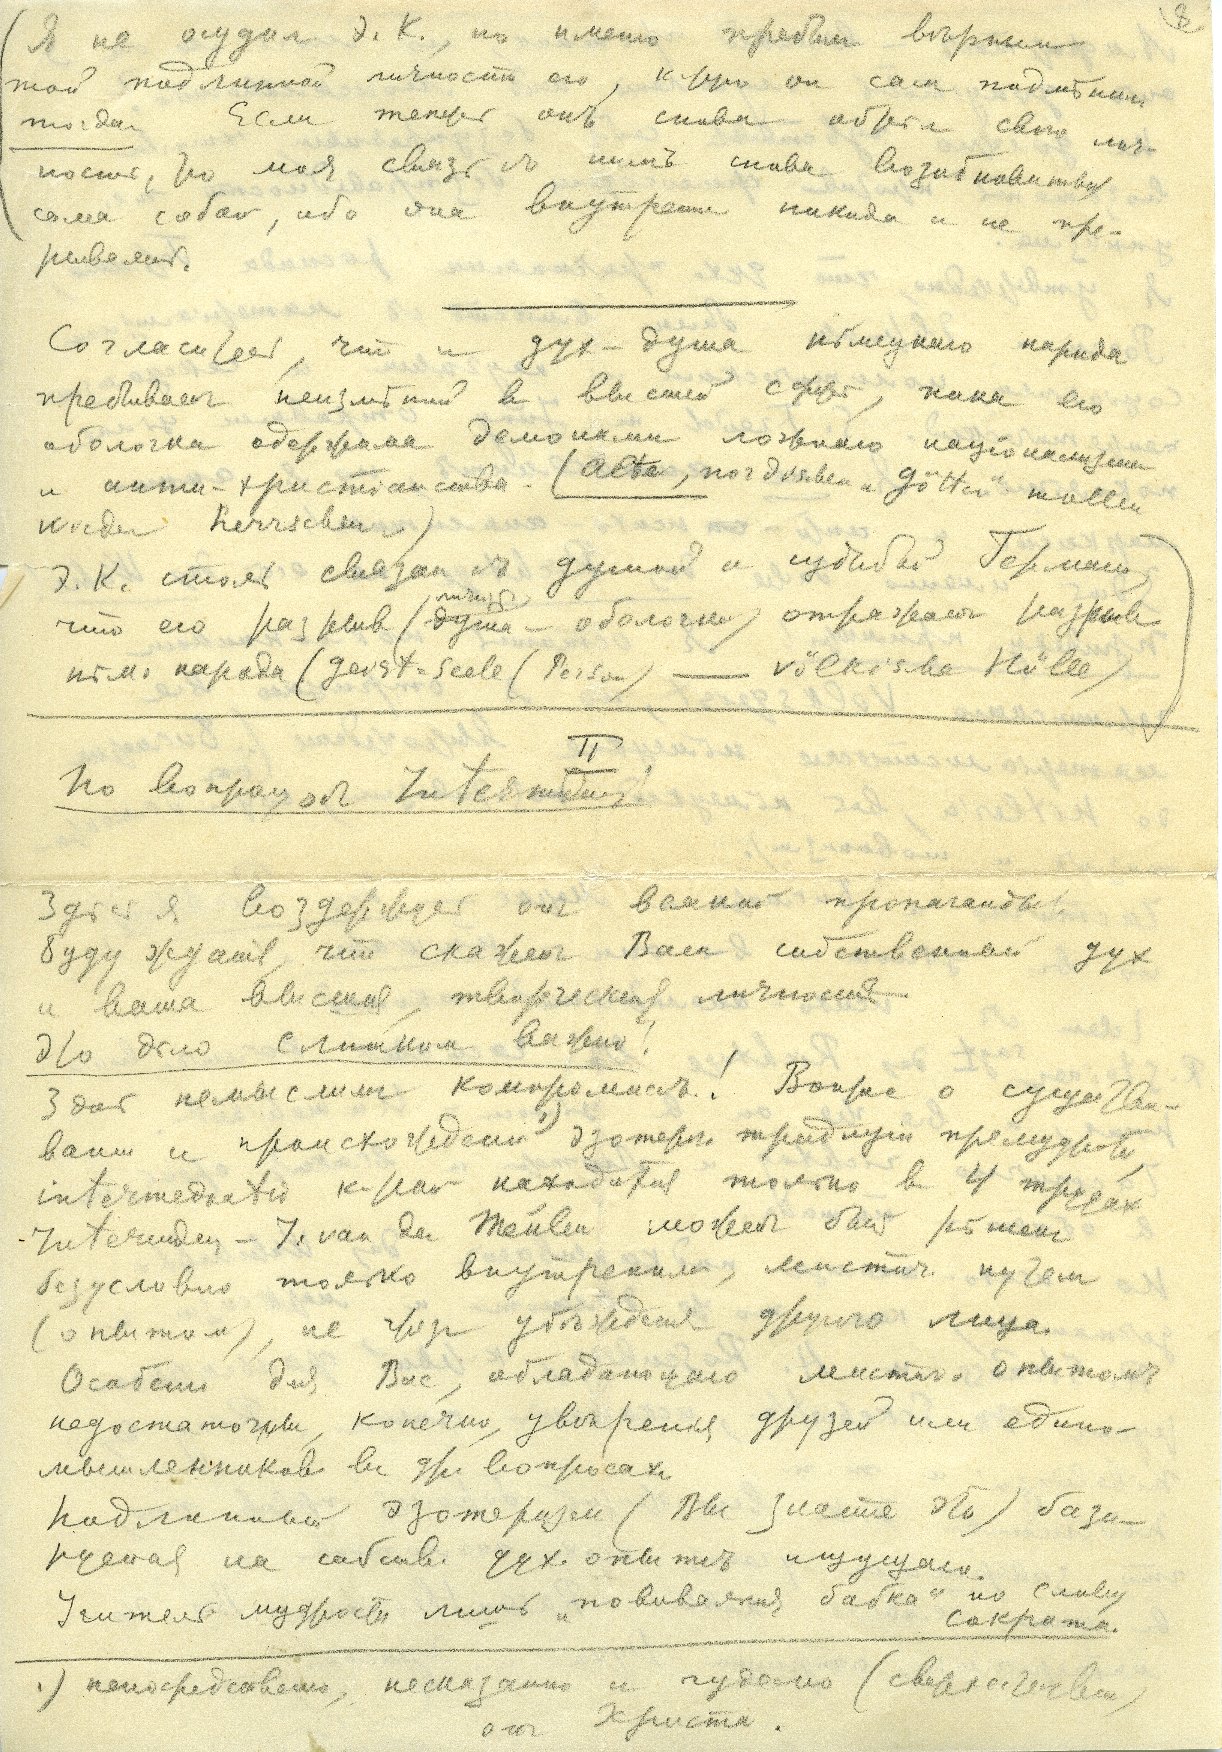 8
(Я не осудил Э. К., но имено пребыл вѣрным
той подлинной личности его, к-рую он сам подмѣнил
тогда. Если теперь онъ снова обрел свою лич-
ность, то моя связь съ нимъ снова возобновится
сама собой, ибо она внутренне никогда и не пре-
рывалась.
Согласитесь, что и дух-душа нѣмецкаго народа
пребывает неизмѣнной в высшей сфере, пока его
оболочка одержима демонами ложнаго націонализма
и анти-христіанства. (Alte, nordischen „Götter" wollen
wieder herrschen)
Э. К. столь связан съ душой и судьбой Германіи,
что его разрыв (личность – оболочка) отражает разрыв
нѣм. народа (Geist-Seele (Person) — völkische Hülle)
II
По вопросу об Intermedius!
Здѣсь я воздержусь от всякой пропаганды!
Буду ждать, что скажет Вам собственный дух
и ваша высшая, творческая личность.
Это дѣло слишком важно!
Здѣсь немыслим компромисъ! Вопрос о существо-
вании и происхожденіи 1) эзотерич. традиціи премудрости
intermediatio к-рая находится только в 4 трудах
Intermedius – J. van der Meulen может быть рѣшен
безусловно только внутренним, мистич. путем
(опытом), не чрез убѣжденія другого лица.
Особенно для Вас, обладающаго мистич. опытомъ
недостаточны, конечно, увѣренія друзей или едино-
мышленников въ этих вопросах.
Подлинный эзотеризм (Вы знаете это) бази-
руется на собств. дух. опытѣ ищущаго.
Учитель мудрости лишь „повивальная бабка" по слову
Сократа.
1) непосредственно, несказанно и чудесно (сверхъестествен.)
от Христа.